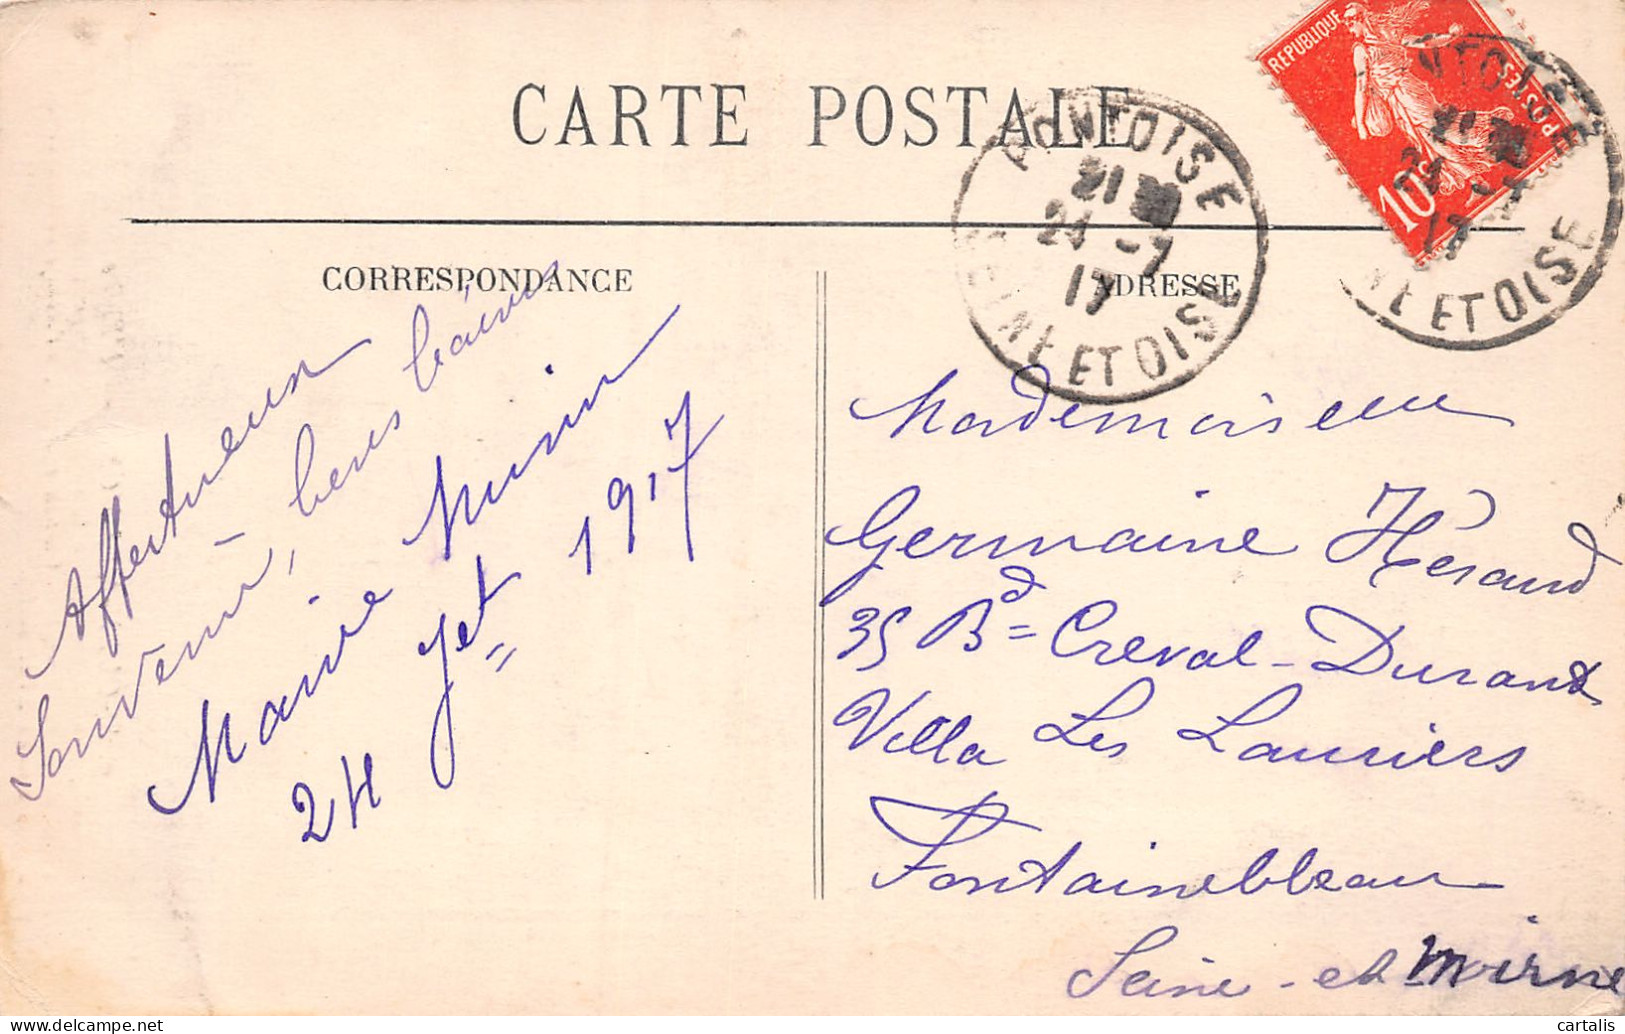 CARTE POSTALE
REPUBLIQUE
POSTES
10c
PONTOISE
21
24 -7
17
SEINE ET OISE
PONTOISE
21
24 -7
17
SEINE ET OISE
CORRESPONDANCE
Affectueux
Souvenir, bons
Marie
24 Jet 1917
ADRESSE
Mademoiselle
Germaine Héraud
35 Bd Creval-Durant
Villa Les Lauriers
Fontainebleau
Seine-et Marne
cartalis